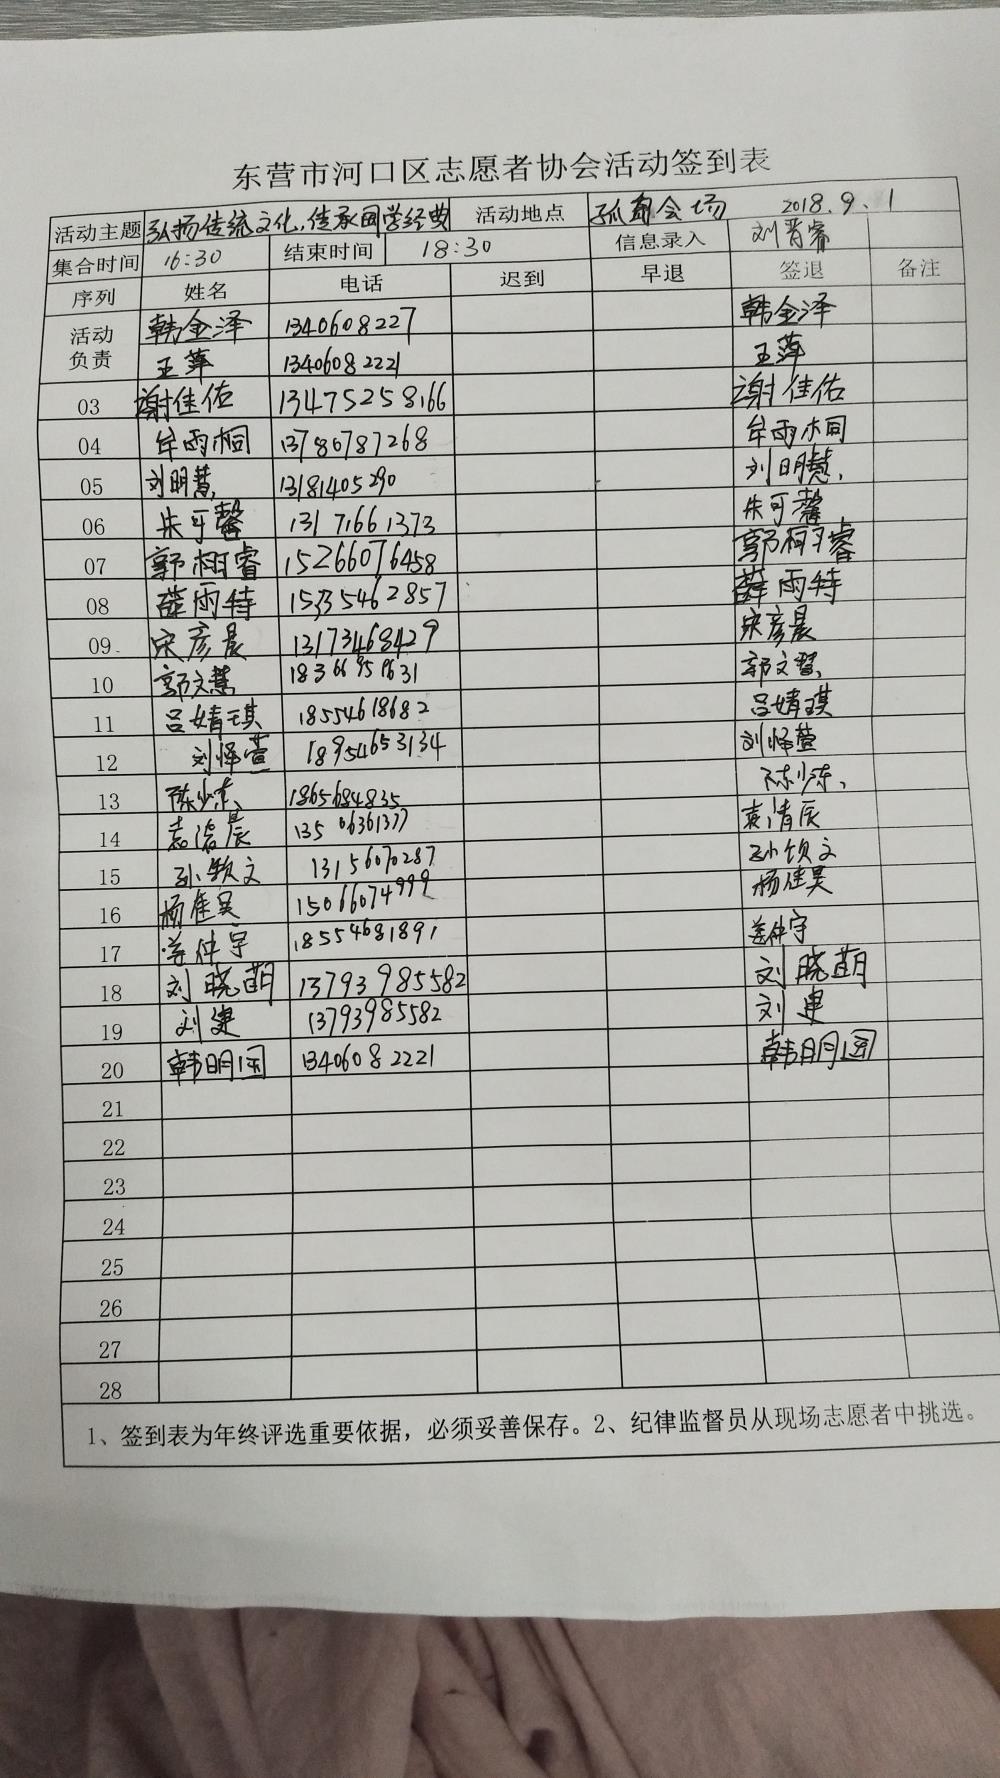 东营市河口区志愿者协会活动签到表
活动主题 弘扬传统文化,传承国学经典 活动地点 孤岛会场 2018.9.1
集合时间 16:30 结束时间 18:30 信息录入 刘晋睿
序列 姓名 电话 迟到 早退 签退 备注
活动负责 韩金泽 1340608227 韩金泽
王萍 13406082221 王萍
03 谢佳佑 13475258166 谢佳佑
04 牟雨桐 13780787268 牟雨桐
05 刘明慧 13181405290 刘明慧
06 朱可馨 13171661373 朱可馨
07 郭栩睿 15266076458
08 薛雨特 15335462857 薛雨特
09 宋彦晨 13173468429 宋彦晨
10 郭文慧 郭文慧
11 吕婧琪 18554618682 吕婧琪
12 刘怿萱 18954653134 刘怿萱
13 陈少东 1865684835 陈少东
14 袁浩晨 13506361377
15 孙颖文 13156070287
16 杨佳昊 15066074999 杨佳昊
17 姜仲宇 18554681891 姜仲宇
18 刘晓萌 13793985582 刘晓萌
19 刘建 13793985582 刘建
20 韩明国 13406082221 韩明国
21
22
23
24
25
26
27
28
1、签到表为年终评选重要依据，必须妥善保存。2、纪律监督员从现场志愿者中挑选。